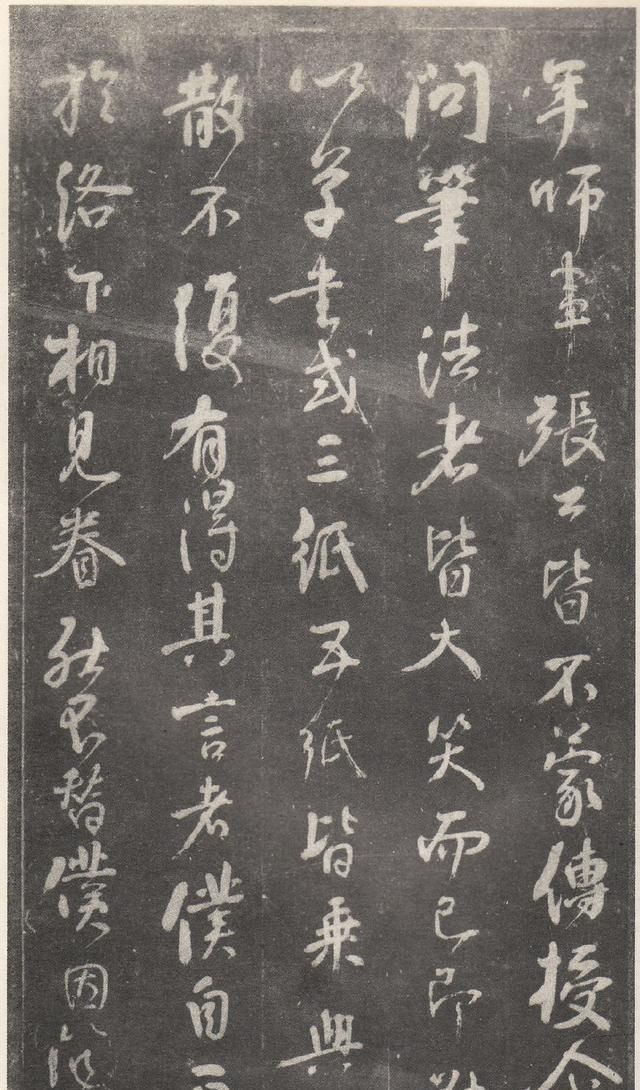 年師盡張公皆不蒙傳授人
問筆法者皆大笑而已即
以草書或三紙五紙皆乘興
散不復有得其言者僕自再
於洛下相見眷然不替僕因